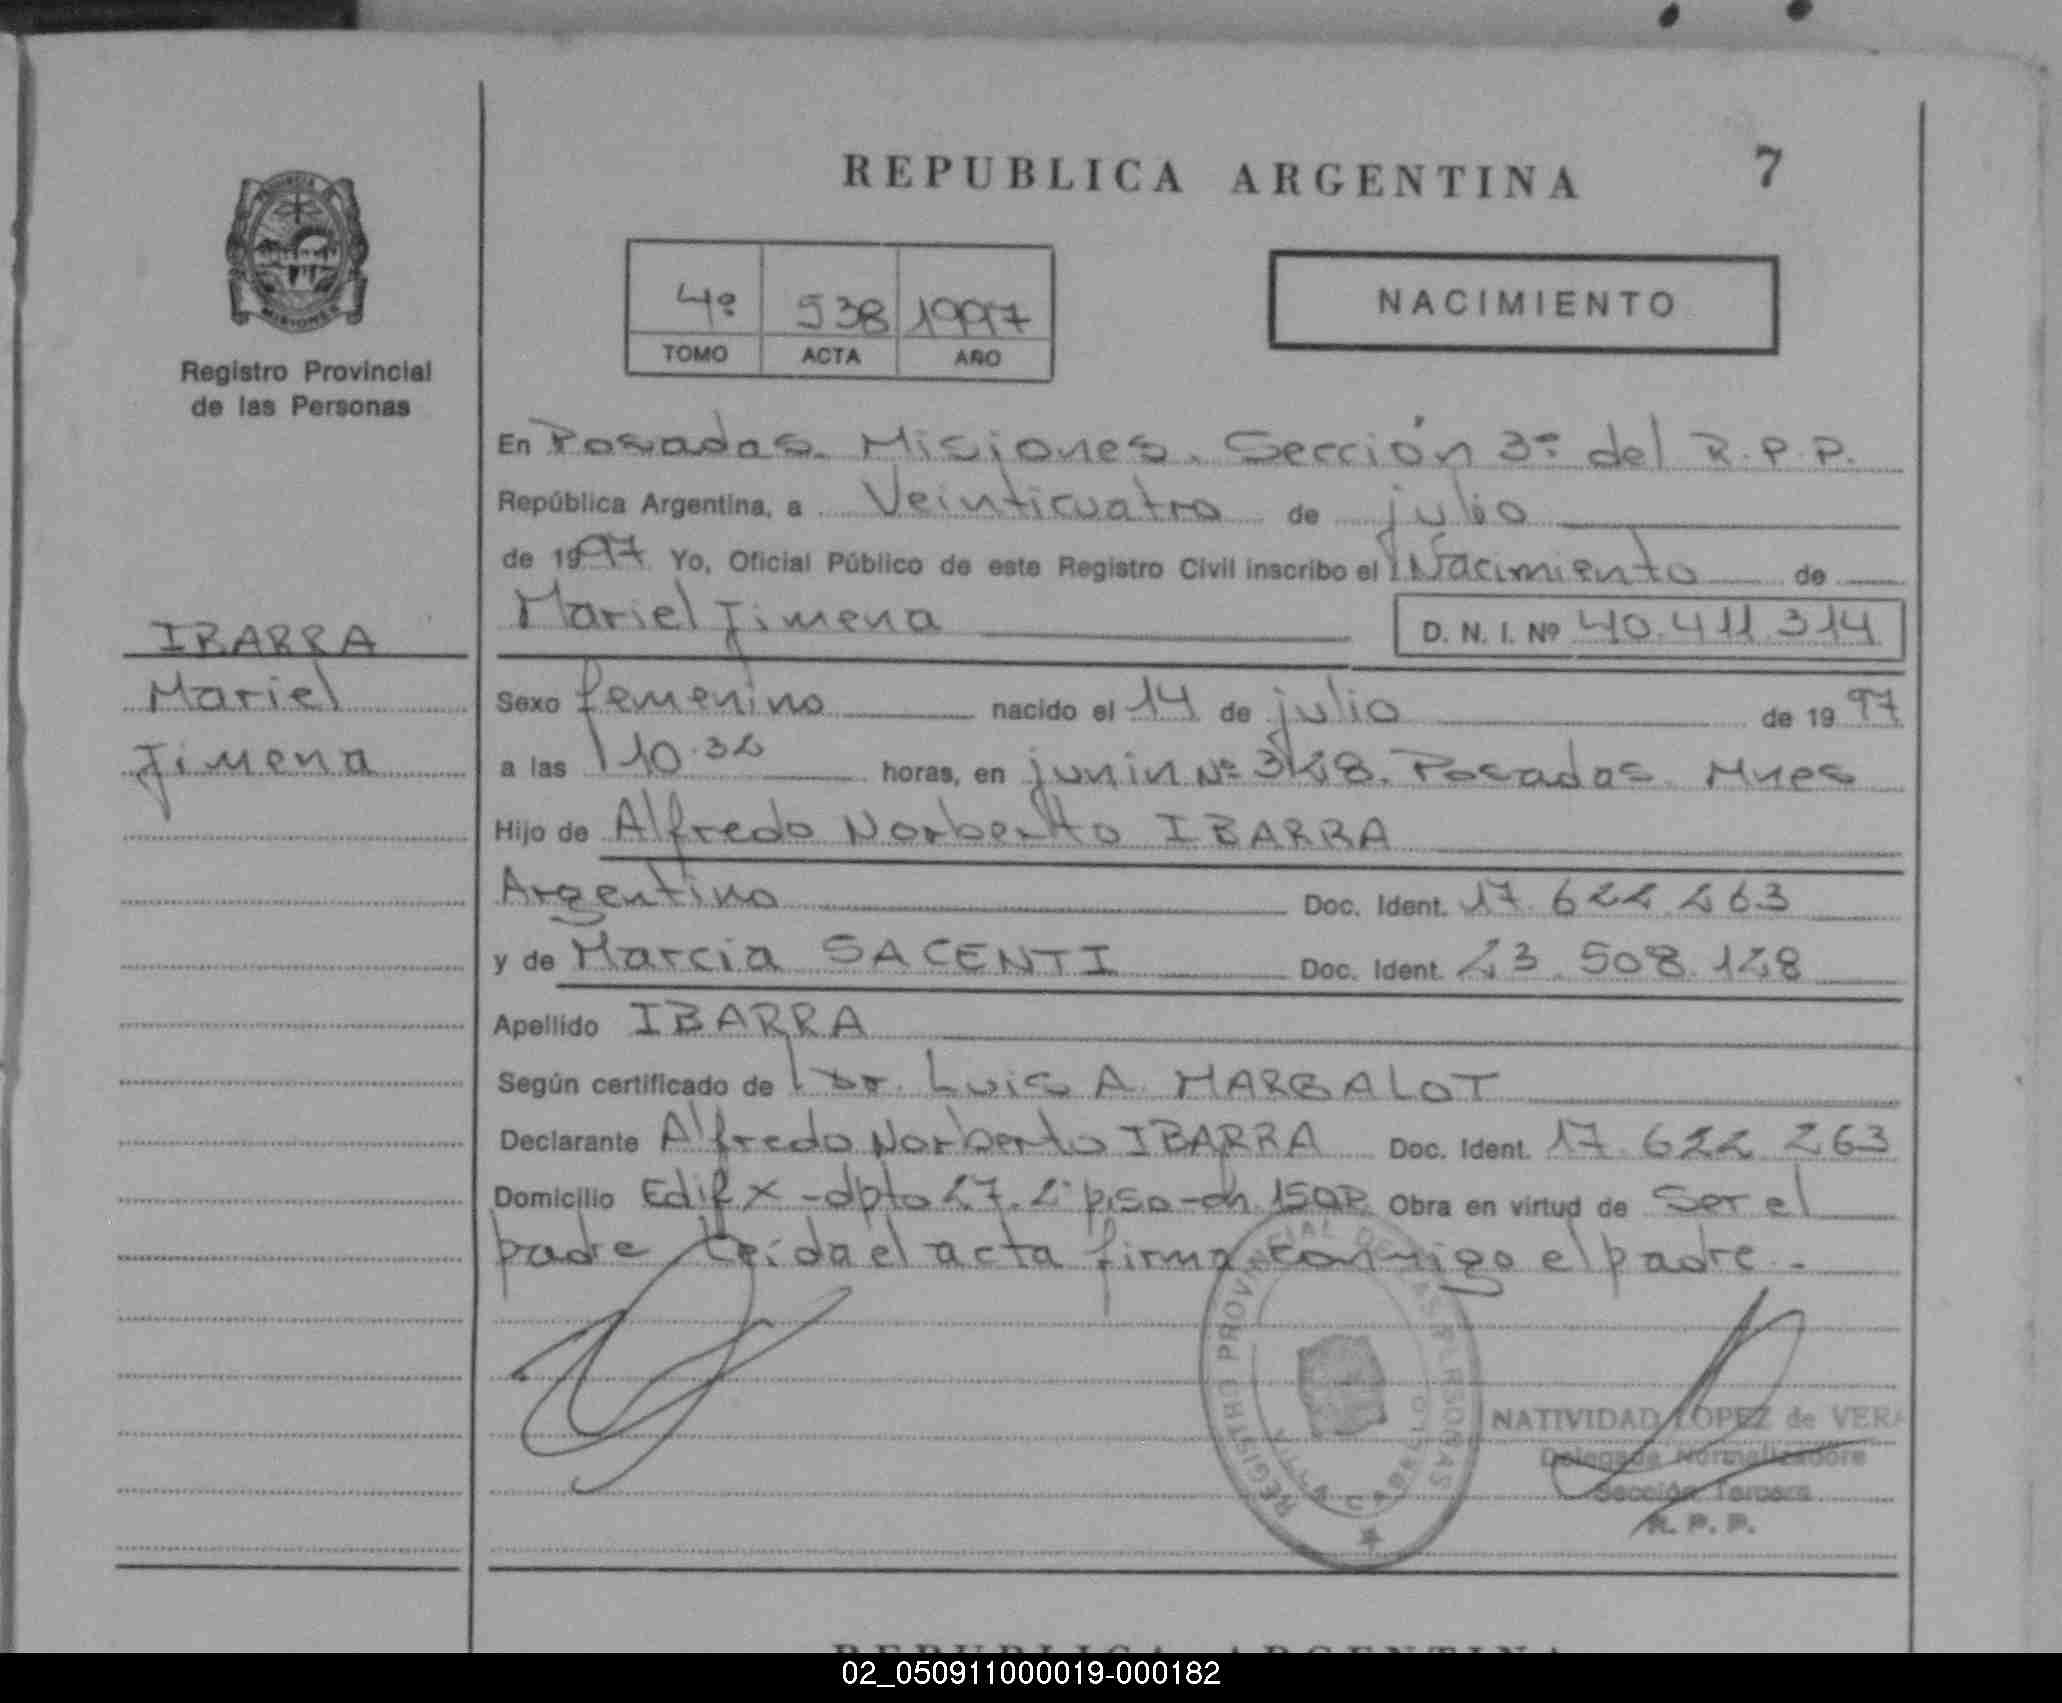 REPUBLICA ARGENTINA 7
PROVINCIA
MISIONES
Registro Provincial
de las Personas
4º 538 1997
TOMO ACTA AÑO
NACIMIENTO
En Posadas. Misiones. Sección 3º del R.P.P.
República Argentina, a Veinticuatro de julio
de 1997 Yo, Oficial Público de este Registro Civil inscribo el Nacimiento de
Mariel Jimena D. N. I. Nº 40.411.314
IBARRA
Mariel
Jimena
Sexo femenino nacido el 14 de julio de 1997
a las 10.32 horas, en junin Nº 328. Posadas. Mnes
Hijo de Alfredo Norberto IBARRA
Argentino Doc. Ident. 17.622.263
y de Marcia SACENTI Doc. Ident. 23.508.128
Apellido IBARRA
Según certificado de Dr. Luis A. MARBALOT
Declarante Alfredo Norberto IBARRA Doc. Ident. 17.622.263
Domicilio Edif. X - dpto 27. 2º piso - ch. 150 P. Obra en virtud de Ser el
padre Leída el acta firma conmigo el padre.-
REGISTRO PROVINCIAL DE LAS PERSONAS
VILLA CABELLO
NATIVIDAD LOPEZ de VERA
Delegada Normalizadora
Sección Tercera
R. P. P.
REPUBLICA ARGENTINA
02_050911000019-000182